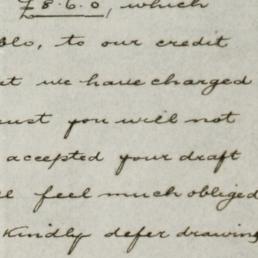 £8.6.0, which
to our credit
we have charged
you will not
accepted your draft
feel much obliged
Kindly defer drawing